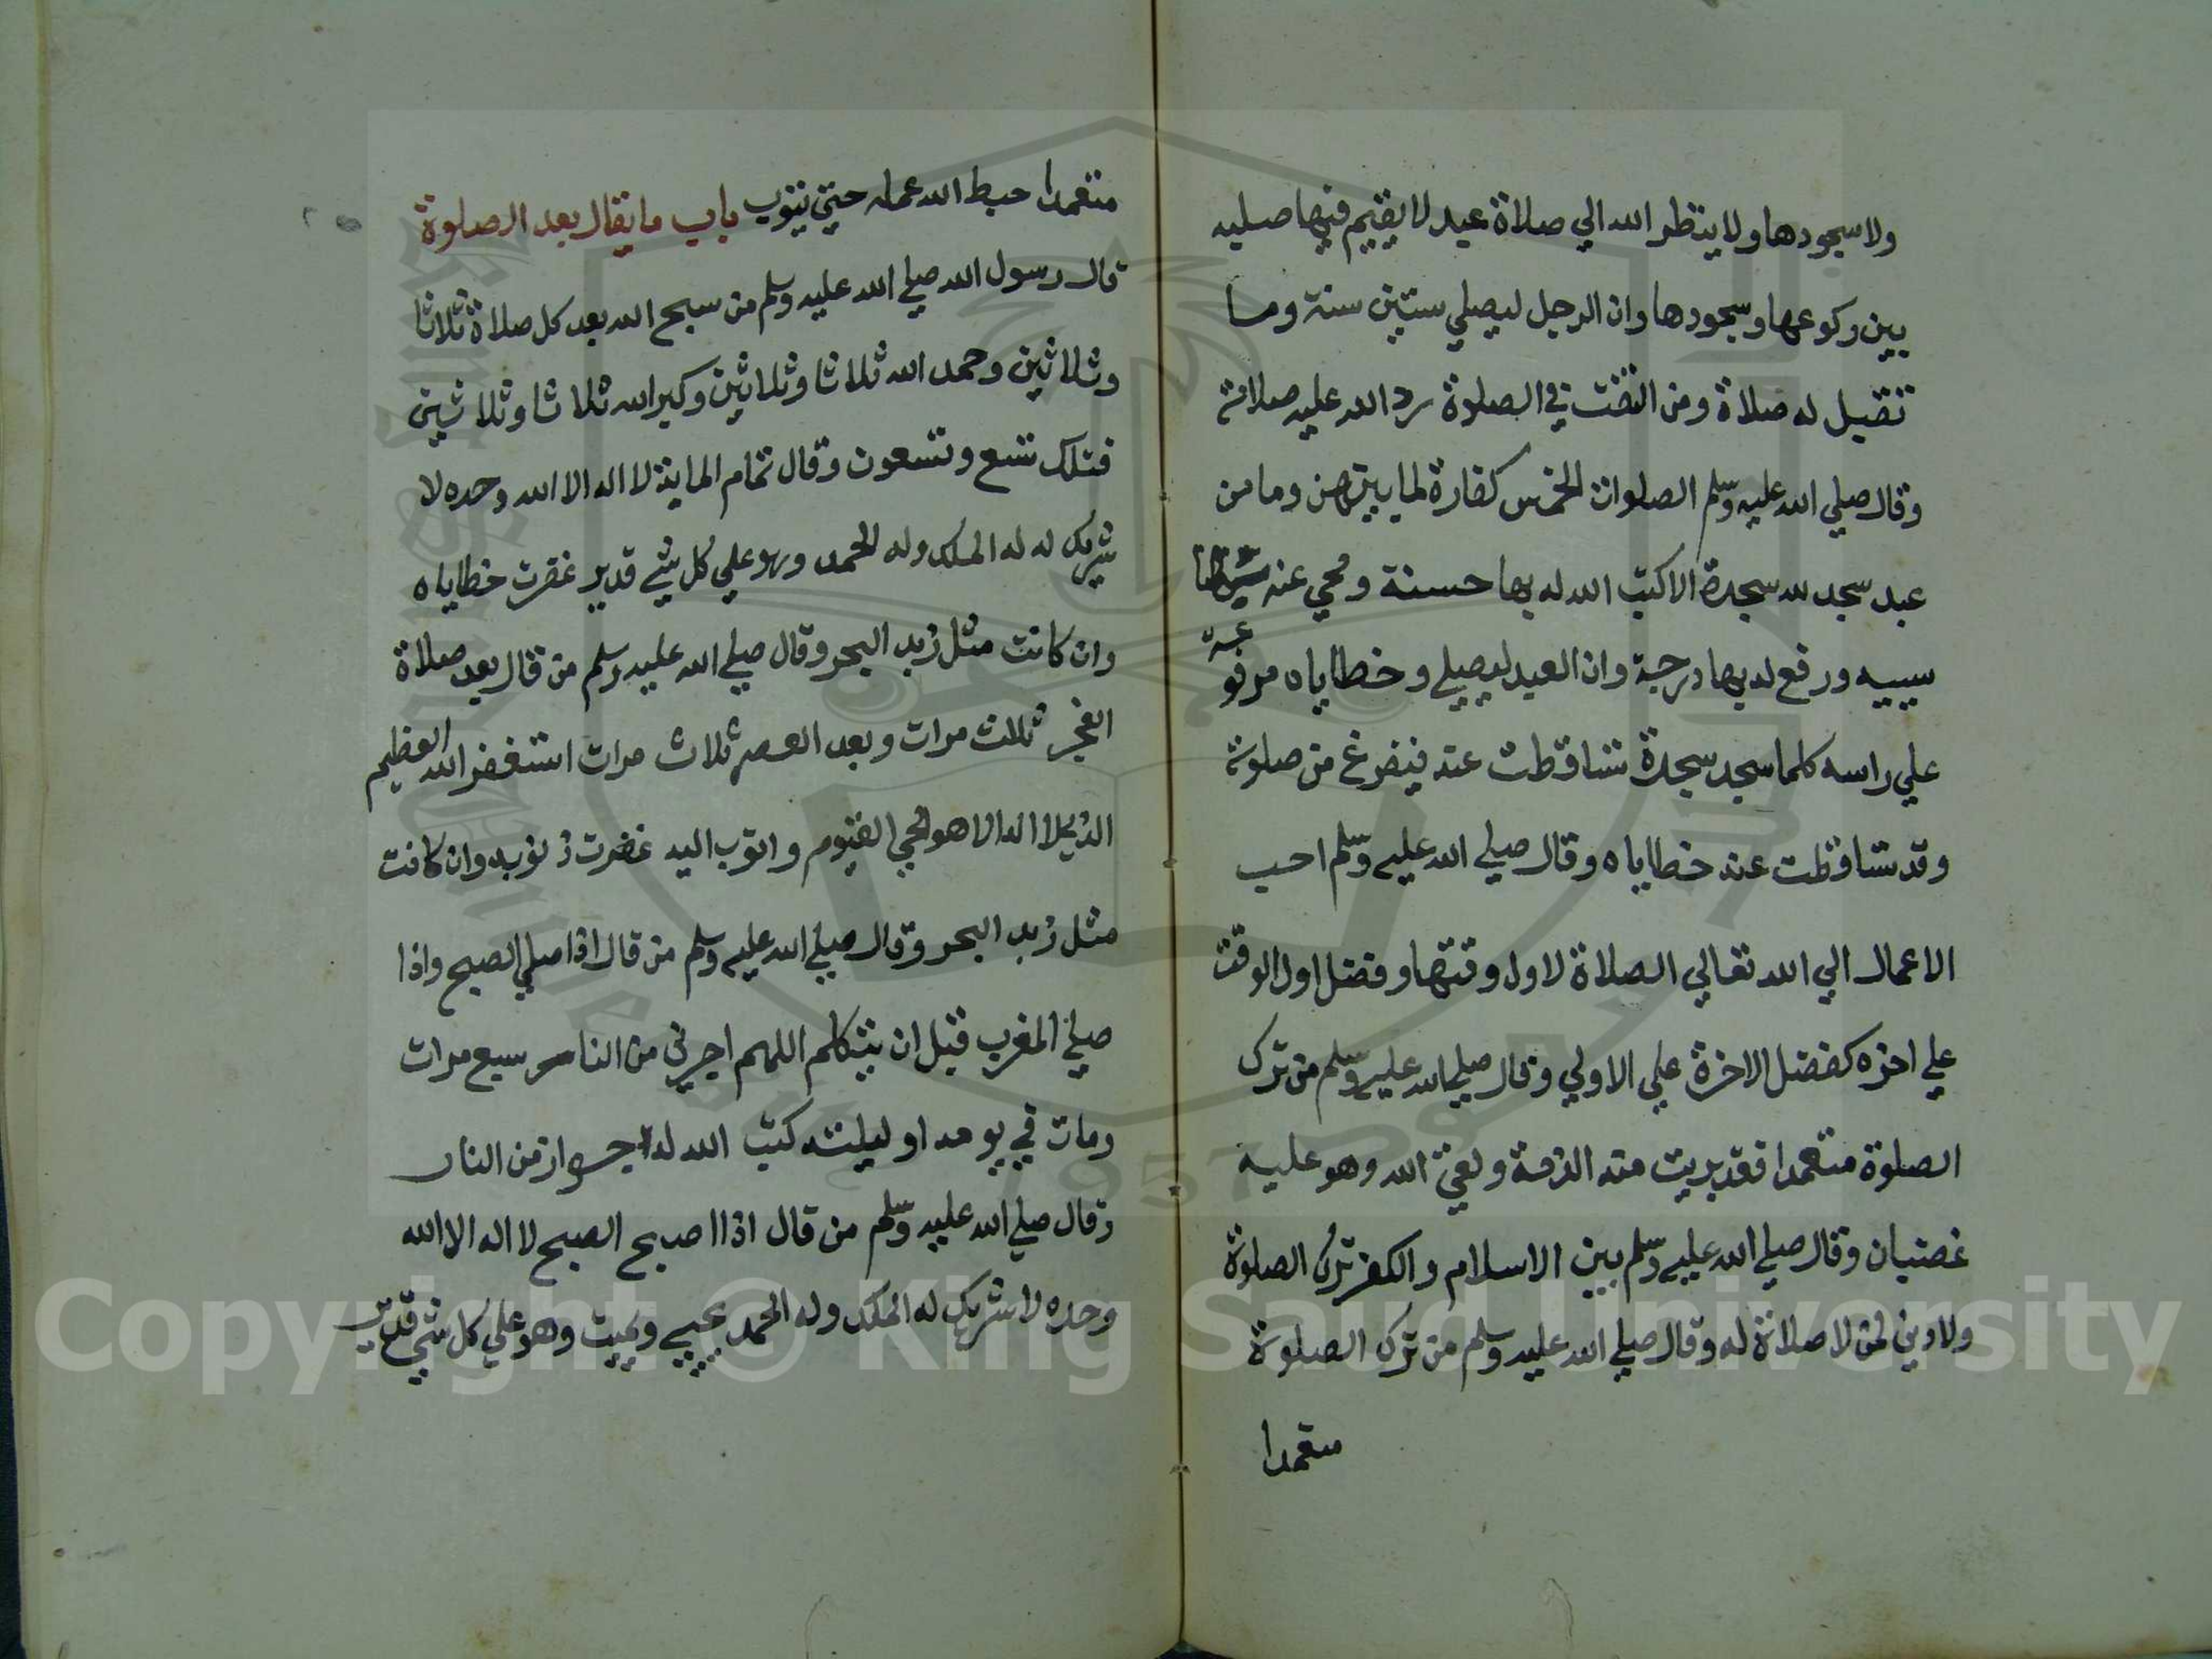 ولا سجودها ولا ينظر الله الي صلاة عبد لا يقيم فيها صلبه
بين ركوعها وسجودها وان الرجل ليصلي ستين سنة وما
تقبل له صلاة ومن التفت في الصلوة رد الله عليه صلاته
وقال صلي الله عليه وسلم الصلوات الخمس كفارة لما بينهن وما من
عبد سجد لله سجدة الا كتب الله له بها حسنة ومحي عنه
سيبيه ورفع له بها درجة وان العبد ليصلي وخطاياه مرفوعة
علي راسه كلما سجد سجدة تساقطت عنه فيفرغ من صلوته
وقد تساقطت عنه خطاياه وقال صلي الله عليه وسلم احب
الاعمال الي الله تعالي الصلاة لاول وقتها وفضل اول الوقت
علي اخره كفضل الاخرة علي الاولي وقال صلي الله عليه وسلم من ترك
الصلوة متعمدا فقد بريت منه الذمة ولقي الله وهو عليه
غضبان وقال صلي الله عليه وسلم بين الاسلام والكفر ترك الصلوة
ولا دين لمن لا صلاة له وقال صلي الله عليه وسلم من ترك الصلوة
متعمدا
متعمدا حبط الله عمله حتي يتوب باب ما يقال بعد الصلوة
قال رسول الله صلي الله عليه وسلم من سبح الله بعد كل صلاة ثلاثا
وثلاثين وحمد الله ثلاثا وثلاثين وكبر الله ثلاثا وثلاثين
فتلك تسع وتسعون وقال تمام الماية لا اله الا الله وحده لا
شريك له له الملك وله الحمد وهو علي كل شي قدير غفرت خطاياه
وان كانت مثل زبد البحر وقال صلي الله عليه وسلم من قال بعد صلاة
الفجر ثلاث مرات وبعد العصر ثلاث مرات استغفر الله العظيم
الذي لا اله الا هو الحي القيوم واتوب اليه غفرت ذنوبه وان كانت
مثل زبد البحر وقال صلي الله عليه وسلم من قال اذا صلي الصبح واذا
صلي المغرب قبل ان يتكلم اللهم اجرني من النار سبع مرات
ومات في يومه او ليلته كتب الله له جواز من النار
وقال صلي الله عليه وسلم من قال اذا اصبح الصبح لا اله الا الله
وحده لا شريك له الملك وله الحمد يحيي ويميت وهو علي كل شي قدير
Copyright © King Saud University
1957